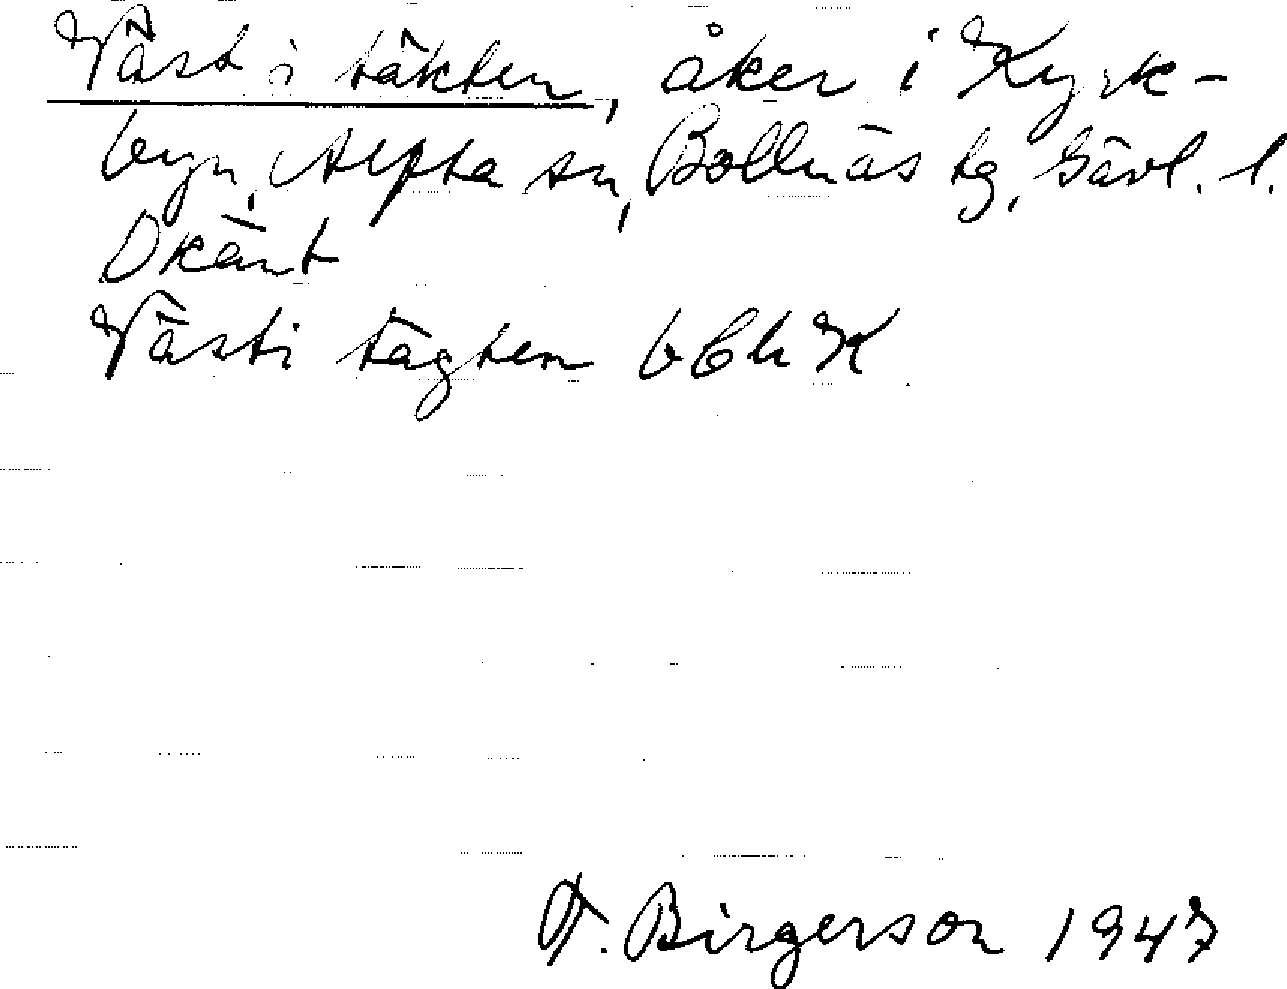 Väst i täkten, åker i Kyrk-
byn, Alfta sn, Bollnäs tg, Gävl. l.
Okänt
Västi tägten
Birgerson 1947